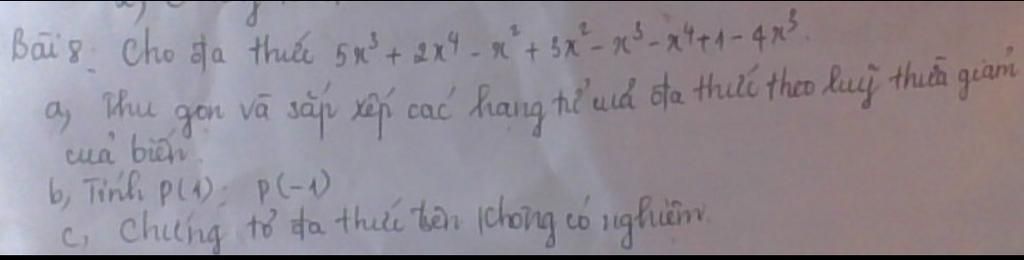 Bài 8: Cho đa thức 5x³ + 2x⁴ - x² + 3x² - x³ - x⁴ + 1 - 4x³.
a, Thu gọn và sắp xếp các hạng tử của đa thức theo luỹ thừa giảm
của biến.
b, Tính P(1); P(-1)
c, Chứng tỏ đa thức trên không có nghiệm.